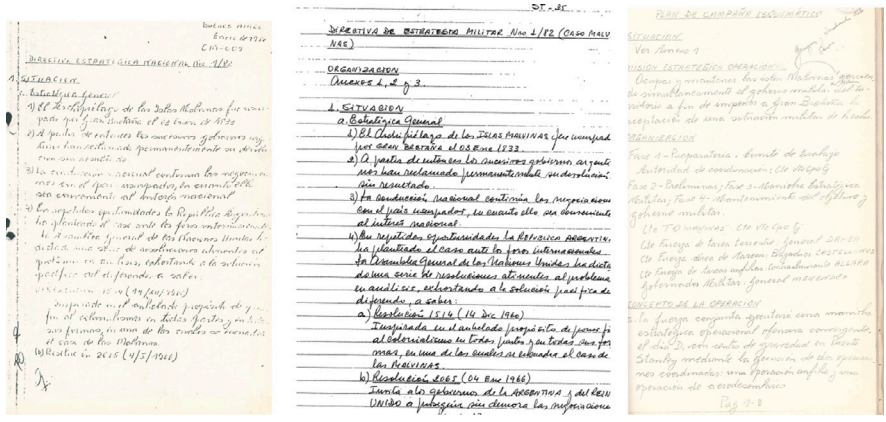 BUENOS AIRES
Enero de 1982
DIRECTIVA ESTRATEGICA NACIONAL Nro. 1/82
1. SITUACION
a. Estratégica General
1) El Archipiélago de las Islas Malvinas fue
por Gran Bretaña el 03 Enero de 1833
2) A partir de entonces los sucesivos gobiernos
han reclamado permanentemente su
sin resultado
3) La conducción nacional continua las
con el país usurpador, en cuanto ello
sea conveniente al interés nacional
4) En repetidas oportunidades la República Argentina
ha planteado el caso ante los foros internacionales
La Asamblea General de las Naciones Unidas ha
dictado una serie de resoluciones atinentes al
en análisis, exhortando a la solución
pacífica del diferendo, a saber
Inspirada en el anhelado propósito de
fin al colonialismo en todas partes y en
sus formas, en una de las cuales se
el caso de las Malvinas.
(b) 2065 (4/I/1966)
DIRECTIVA DE ESTRATEGIA MILITAR Nro 1/82 (CASO MALVI
NAS)
ORGANIZACION
Anexos 1, 2 y 3.
1. SITUACION
a. Estratégica General
1) El Archipiélago de las ISLAS MALVINAS fue usurpado
por GRAN BRETAÑA el 03 Ene 1833.
2) A partir de entonces los sucesivos gobiernos argenti
nos han reclamado permanentemente su devolución
sin resultado.
3) La conducción nacional continúa las negociacion
con el país usurpador, en cuanto ello, sea conveniente
al interés nacional.
4) En repetidas oportunidades la REPUBLICA ARGENTINA
ha planteado el caso ante los foros internacionales.
La Asamblea General de las Naciones Unidas ha dicta
do una serie de resoluciones atinentes al problema
en análisis, exhortando a la solución pacífica de
diferendo, a saber:
a) Resolución 1514 (14 Dic 1960)
Inspirada en el anhelado propósito de poner fi
al colonialismo en todas partes y en todas sus for
mas, en una de las cuales se encuadra el caso de
las MALVINAS.
b) Resolución 2065 (04 Ene 1966)
Invita a los gobiernos de la ARGENTINA y del REIN
UNIDO a proseguir sin demora las negociacione
PLAN DE CAMPAÑA ESQUEMATICO
SITUACION
Ver Anexo 1
MISION ESTRATEGICA OPERACION
Ocupar y mantener las islas Malvinas
simultaneamente al gobierno militar
a fin de imponer a Gran Bretaña la
aceptación de una situación militar de hecho
ORGANIZACION
Fase 1 - Preparatoria. Comité de trabajo
Autoridad de coordinación:
Fase 2 - Preliminar; Fase 3 - Maniobra Estratégica
Militar; Fase 4 - Mantenimiento del objetivo y
gobierno militar.
Cte TO MALVINAS:
Cte Fuerza de tarea terrestre: General
Cte Fuerza aérea de tareas: Brigadier CASTELLANOS
Cte Fuerza de tareas anfibia: Contraalmirante ALLARA
Gobernador Militar: General MENENDEZ
CONCEPTO DE LA OPERACION
La fuerza conjunta ejecutará como maniobra
estratégica operacional ofensiva convergente,
el día D, con centro de gravedad en Puerto
Stanley mediante la ejecución de dos operacio
nes coordinadas: una operación anfibia y una
operación de aerodesembarco
Pag 1-8